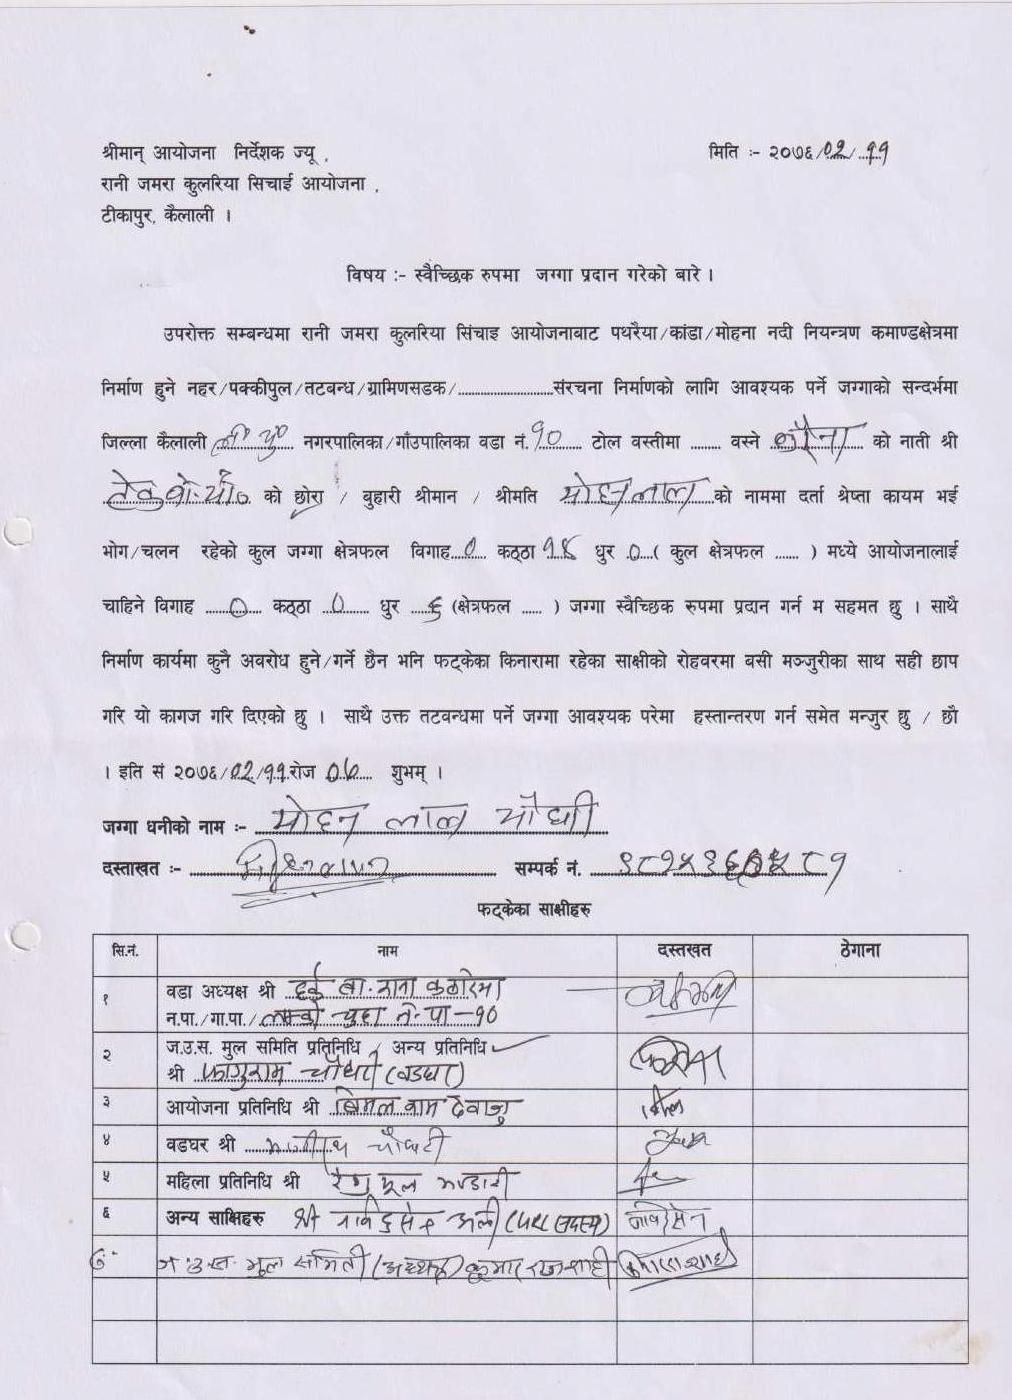 श्रीमान् आयोजना निर्देशक ज्यू , मिति :- २०७६/०२/११
रानी जमरा कुलरिया सिचाई आयोजना ,
टीकापुर, कैलाली ।
विषय :- स्वैच्छिक रुपमा जग्गा प्रदान गरेको बारे ।
उपरोक्त सम्बन्धमा रानी जमरा कुलरिया सिंचाइ आयोजनाबाट पथरैया/कांडा/मोहना नदी नियन्त्रण कमाण्डक्षेत्रमा
निर्माण हुने नहर/पक्कीपुल/तटबन्ध/ग्रामिणसडक/........................संरचना निर्माणको लागि आवश्यक पर्ने जग्गाको सन्दर्भमा
जिल्ला कैलाली ल० चु० नगरपालिका/गाँउपालिका वडा नं. १० टोल वस्तीमा ....... वस्ने को नाती श्री
को छोरा / बुहारी श्रीमान / श्रीमति मोहन लाल को नाममा दर्ता श्रेष्ता कायम भई
भोग/चलन रहेको कुल जग्गा क्षेत्रफल विगाह ० कठ्ठा धुर ० ( कुल क्षेत्रफल ...... ) मध्ये आयोजनालाई
चाहिने विगाह ० कठ्ठा ० धुर ६ (क्षेत्रफल ..... ) जग्गा स्वैच्छिक रुपमा प्रदान गर्न म सहमत छु । साथै
निर्माण कार्यमा कुनै अवरोध हुने/गर्ने छैन भनि फट्केका किनारामा रहेका साक्षीको रोहवरमा बसी मञ्जुरीका साथ सही छाप
गरि यो कागज गरि दिएको छु । साथै उक्त तटवन्धमा पर्ने जग्गा आवश्यक परेमा हस्तान्तरण गर्न समेत मन्जुर छु / छौ
। इति सं २०७६/०२/११ रोज शुभम् ।
जग्गा धनीको नाम :- मोहन लाल चौधरी
दस्ताखत :- सम्पर्क नं.
फट्केका साक्षीहरु
सि.नं. नाम दस्तखत ठेगाना
१ वडा अध्यक्ष श्री
न.पा./गा.पा./ लम्की चुहा न.पा-१०
२ ज.उ.स. मुल समिति प्रतिनिधि / अन्य प्रतिनिधि
श्री फागुराम चौधरी (बडघर)
३ आयोजना प्रतिनिधि श्री
४ वडघर श्री चौधरी
५ महिला प्रतिनिधि श्री
६ अन्य साक्षिहरु श्री
७ ज.उ.स. मुल समिती (अध्यक्ष) कुमार राज शाही